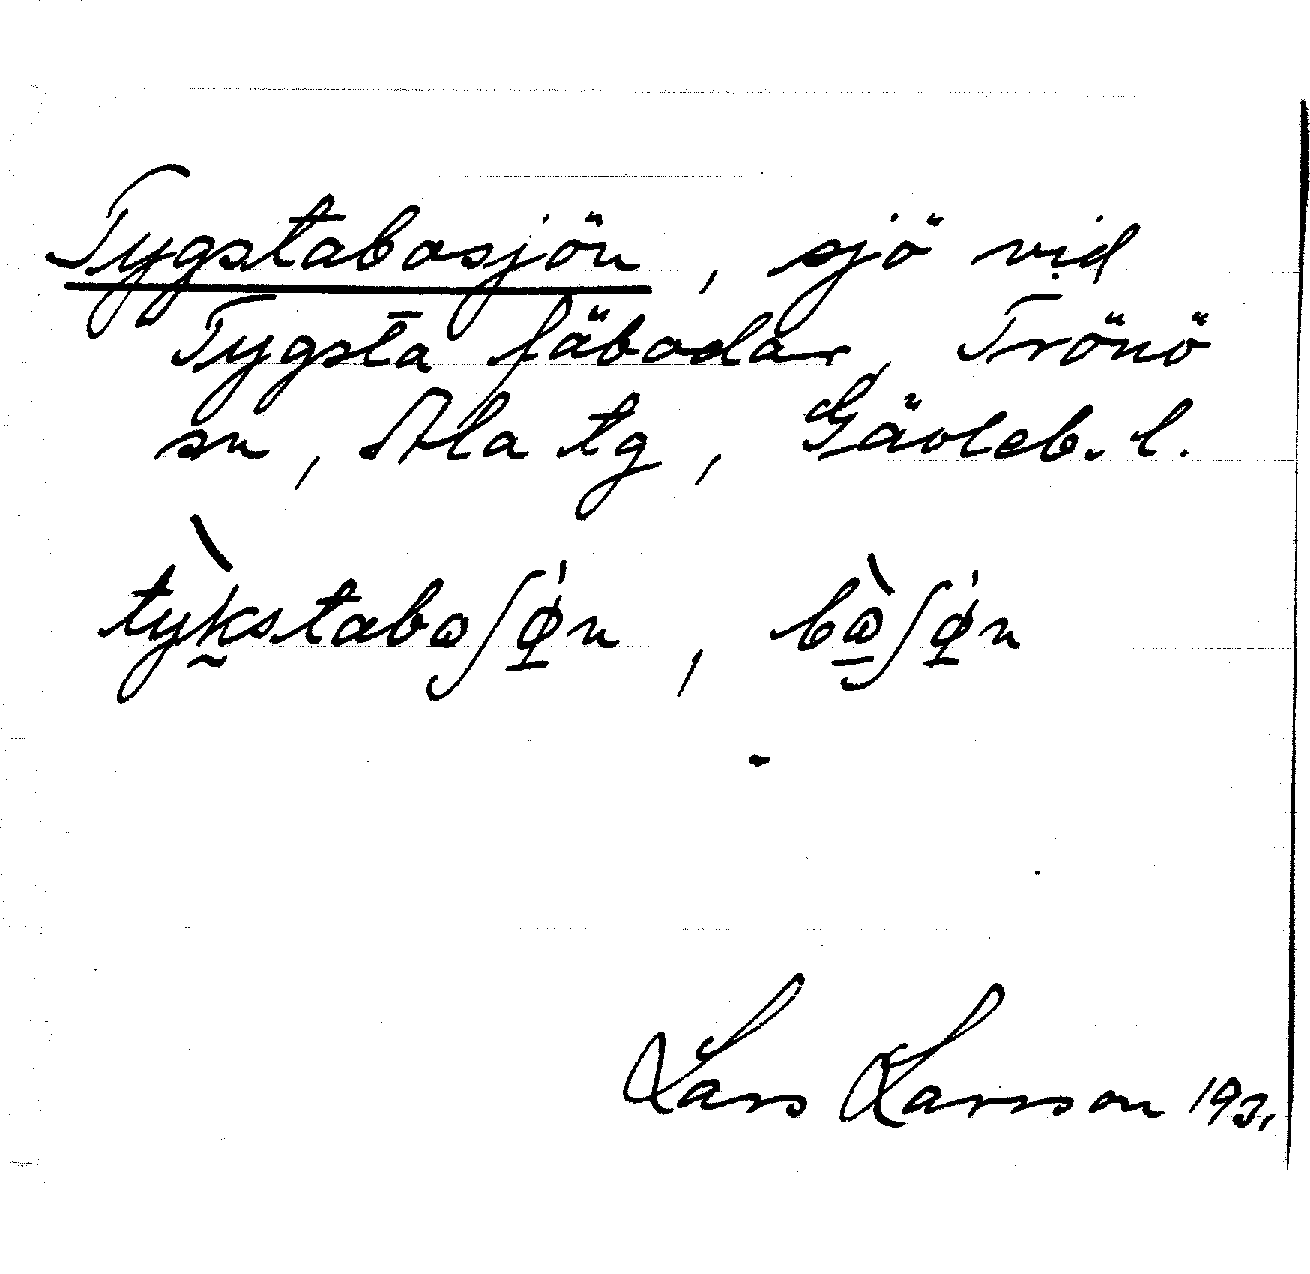 Tygstabosjön, sjö vid
Tygsta fäbodar, Trönö
sn, Ala tg, Gävleb. l.
tỳ̖kstabɷʃǿ̱n, bɷ̱̀ʃǿ̱n
Lars Larsson 193.